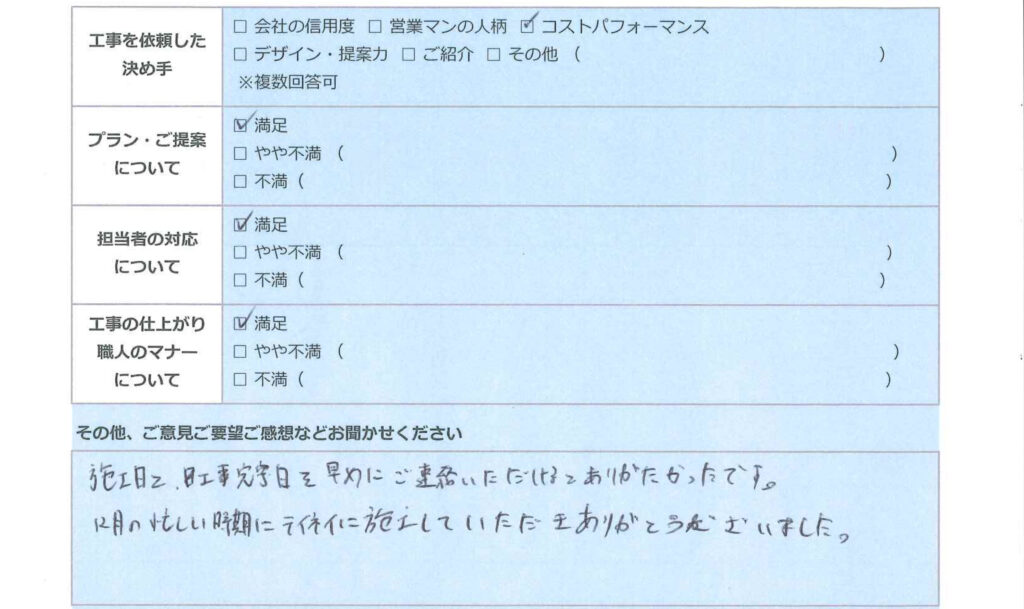 工事を依頼した
決め手
□ 会社の信用度 □ 営業マンの人柄 ☑ コストパフォーマンス
□ デザイン・提案力 □ ご紹介 □ その他 ( )
※複数回答可
プラン・ご提案
について
☑ 満足
□ やや不満 ( )
□ 不満 ( )
担当者の対応
について
☑ 満足
□ やや不満 ( )
□ 不満 ( )
工事の仕上がり
職人のマナー
について
☑ 満足
□ やや不満 ( )
□ 不満 ( )
その他、ご意見ご要望ご感想などお聞かせください
施工日と、工事完了日を早めにご連絡いただけるとありがたかったです。
12月の忙しい時期にテイネイに施工していただきありがとうございました。